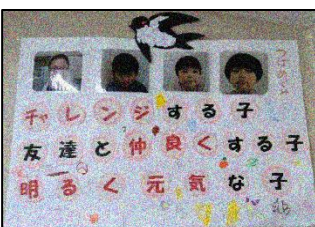 チャレンジする子
友達と仲良くする子
明るく元気な子